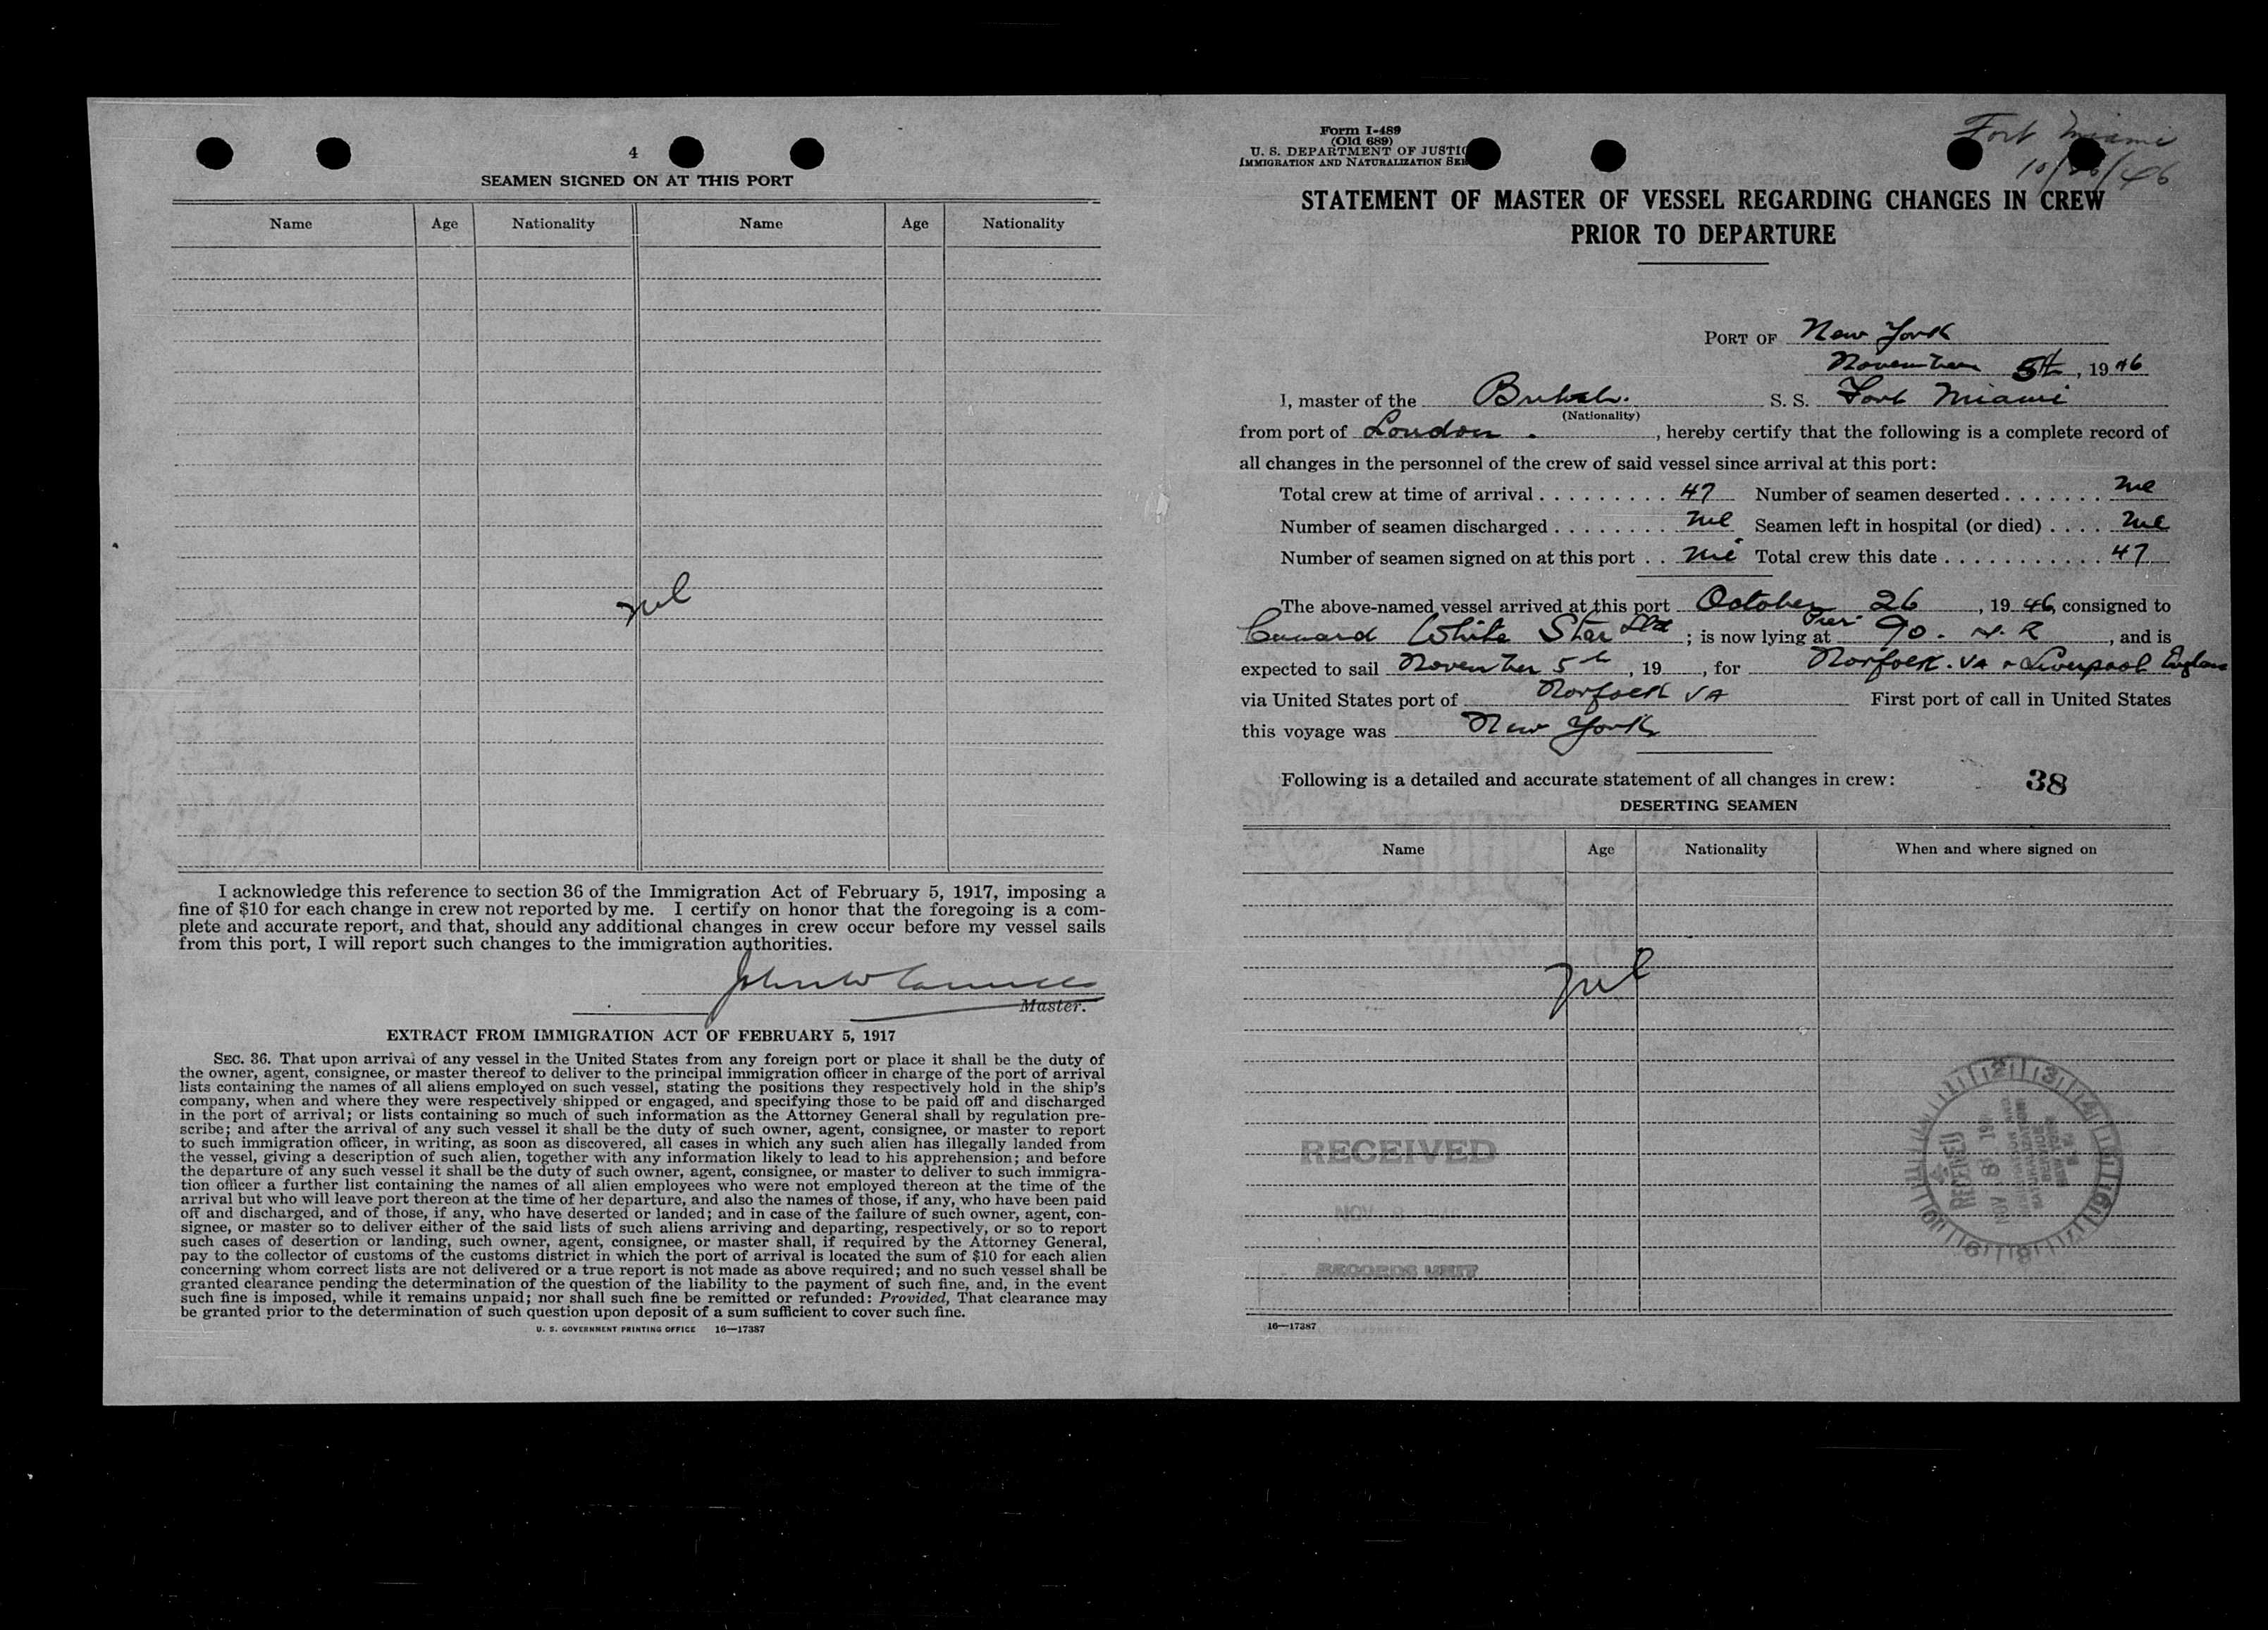 4
SEAMEN SIGNED ON AT THIS PORT
Name Age Nationality Name Age Nationality
Nil
I acknowledge this reference to section 36 of the Immigration Act of February 5, 1917, imposing a
fine of $10 for each change in crew not reported by me. I certify on honor that the foregoing is a com-
plete and accurate report, and that, should any additional changes in crew occur before my vessel sails
from this port, I will report such changes to the immigration authorities.
John W
Master.
EXTRACT FROM IMMIGRATION ACT OF FEBRUARY 5, 1917
SEC. 36. That upon arrival of any vessel in the United States from any foreign port or place it shall be the duty of
the owner, agent, consignee, or master thereof to deliver to the principal immigration officer in charge of the port of arrival
lists containing the names of all aliens employed on such vessel, stating the positions they respectively hold in the ship's
company, when and where they were respectively shipped or engaged, and specifying those to be paid off and discharged
in the port of arrival; or lists containing so much of such information as the Attorney General shall by regulation pre-
scribe; and after the arrival of any such vessel it shall be the duty of such owner, agent, consignee, or master to report
to such immigration officer, in writing, as soon as discovered, all cases in which any such alien has illegally landed from
the vessel, giving a description of such alien, together with any information likely to lead to his apprehension; and before
the departure of any such vessel it shall be the duty of such owner, agent, consignee, or master to deliver to such immigra-
tion officer a further list containing the names of all alien employees who were not employed thereon at the time of the
arrival but who will leave port thereon at the time of her departure, and also the names of those, if any, who have been paid
off and discharged, and of those, if any, who have deserted or landed; and in case of the failure of such owner, agent, con-
signee, or master so to deliver either of the said lists of such aliens arriving and departing, respectively, or so to report
such cases of desertion or landing, such owner, agent, consignee, or master shall, if required by the Attorney General,
pay to the collector of customs of the customs district in which the port of arrival is located the sum of $10 for each alien
concerning whom correct lists are not delivered or a true report is not made as above required; and no such vessel shall be
granted clearance pending the determination of the question of the liability to the payment of such fine, and, in the event
such fine is imposed, while it remains unpaid; nor shall such fine be remitted or refunded: Provided, That clearance may
be granted prior to the determination of such question upon deposit of a sum sufficient to cover such fine.
U. S. GOVERNMENT PRINTING OFFICE 16—17387
Form I-489
(Old 689)
U. S. DEPARTMENT OF JUSTIC
IMMIGRATION AND NATURALIZATION SER
Fort Miami
10/26/46
STATEMENT OF MASTER OF VESSEL REGARDING CHANGES IN CREW
PRIOR TO DEPARTURE
PORT OF New York
November 5th, 1946
I, master of the British. S. S. Fort Miami
(Nationality)
from port of London., hereby certify that the following is a complete record of
all changes in the personnel of the crew of said vessel since arrival at this port:
Total crew at time of arrival . . . . . . . . . 47 Number of seamen deserted . . . . . . . Nil
Number of seamen discharged . . . . . . . . Nil Seamen left in hospital (or died) . . . . Nil
Number of seamen signed on at this port . . Nil Total crew this date . . . . . . . . . . . 47
The above-named vessel arrived at this port October 26, 1946, consigned to
Cunard White Star Ltd; is now lying at Pier 90. N. R, and is
expected to sail November 5th, 19 , for Norfolk. VA + Liverpool England
via United States port of Norfolk VA First port of call in United States
this voyage was New York
Following is a detailed and accurate statement of all changes in crew:
38
DESERTING SEAMEN
Name Age Nationality When and where signed on
Nil
RECEIVED
NOV 8
RECORDS UNIT
RECEIVED
NOV 8
16—17387